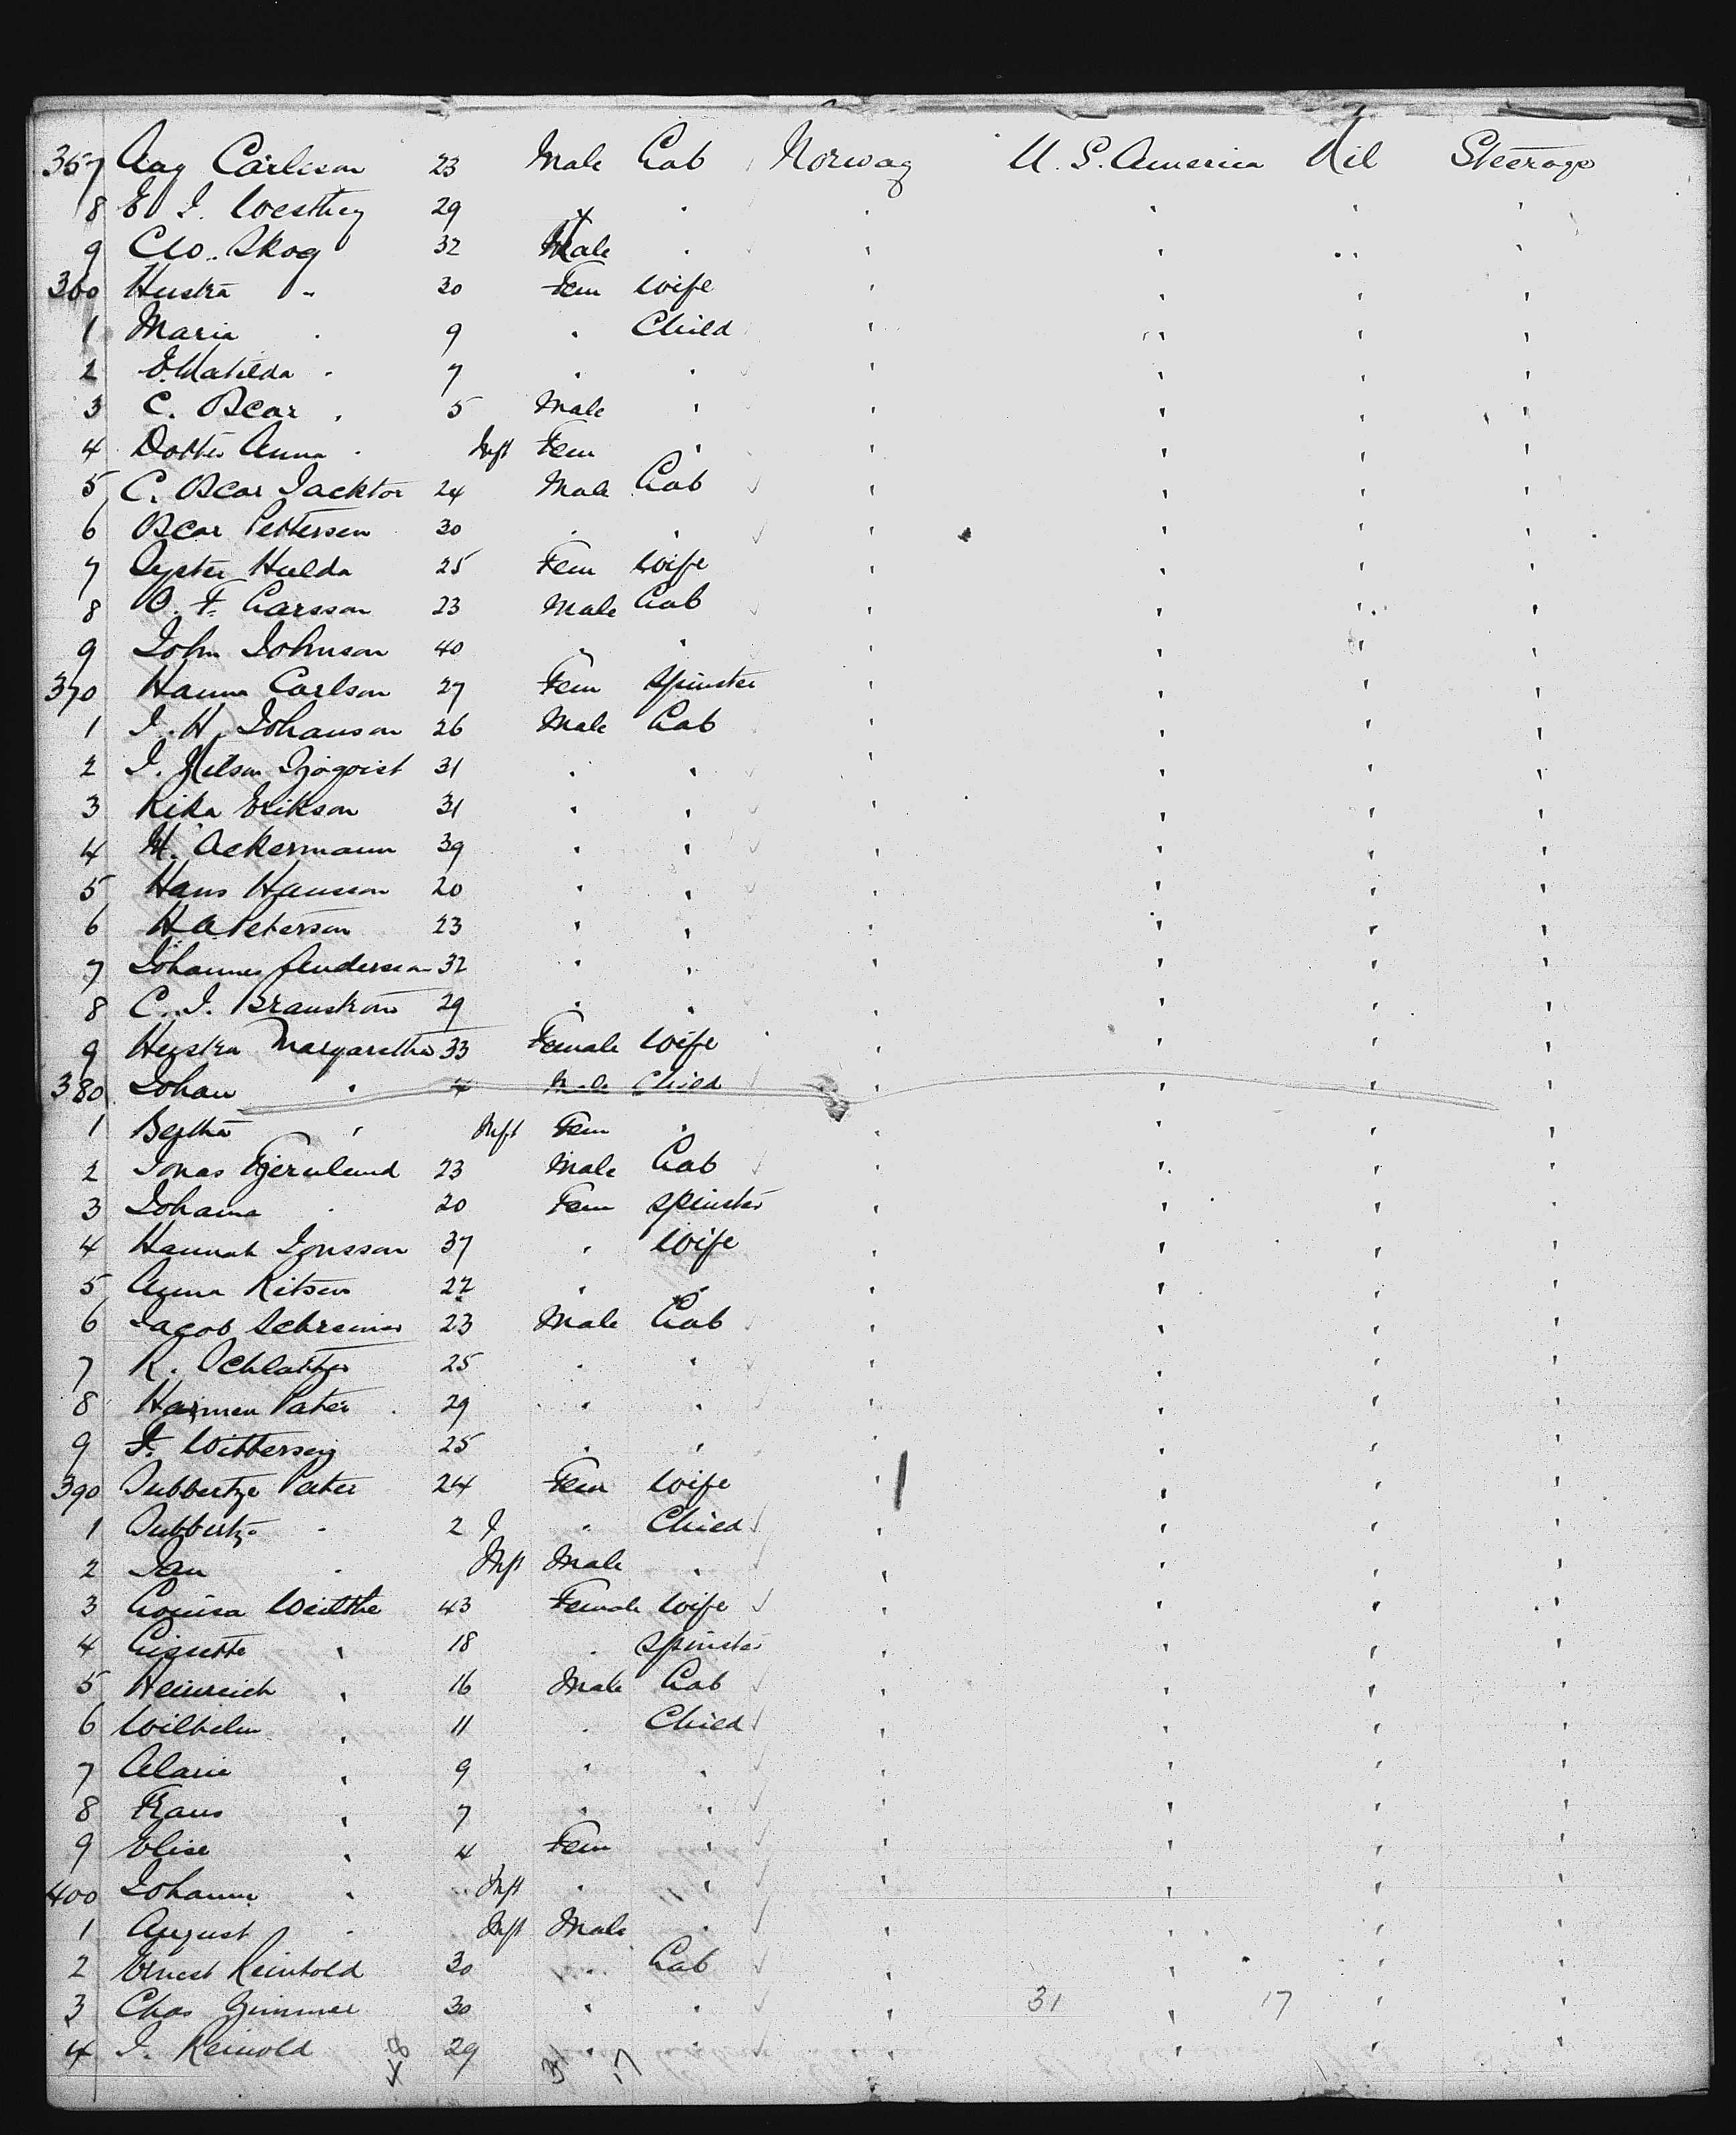 357 Aug Carlsson 23 Male Lab Norway U. S. America Nil Steerage
8 E I. Westhey 29 " "
9 C W. Skog 32 Male "
360 Hustra " 30 Fem Wife
1 Maria " 9 " Child
2 E. Matilda " 7 " "
3 C. Oscar " 5 Male "
4 Dotter Anna " Inft Fem "
5 C. Oscar Jacktor 24 Male Lab
6 Oscar Pettersen 30 " "
7 Syster Hulda 25 Fem Wife
8 O. F. Larsson 23 Male Lab
9 John Johnson 40 " "
370 Hanna Carlson 27 Fem Spinster
1 I. H. Johanson 26 Male Lab
2 I. Nilson Sjöqvist 31 " "
3 Rika Erikson 31 " "
4 H. Ackermann 39 " "
5 Hans Hansson 20 " "
6 H A Peterson 23 " "
7 Johannes Anderson 32 " "
8 C. I. Branstrom 29 " "
9 Hustra Margaretha 33 Female Wife
380 Johan " 4 Male Child
1 Bertha " Inft Fem "
2 Jonas Fjernlund 23 Male Lab
3 Johanna " 20 Fem Spinster
4 Hannah Jonsson 37 " Wife
5 Anna Ritsen 22 " "
6 Jacob Schreiner 23 Male Lab
7 R. Schlatter 25 " "
8 Harmen Pater 29 " "
9 F. Wibbersey 25 " "
390 Dubbertje Pater 24 Fem Wife
1 Dubbertje " 2 " Child
2 Jan " Inft Male "
3 Louisa Wülthe 43 Female Wife
4 Lisette " 18 " Spinster
5 Heinrich " 16 Male Lab
6 Wilhelm " 11 " Child
7 Alarie " 9 " "
8 Frans " 7 " "
9 Elise " 4 Fem "
400 Johanne " Inft " "
1 August " Inft Male "
2 Ernest Reinhold 30 " Lab
3 Chas Zimmer 30 " " 31 17
4 I. Reinold 29 " "
48 31 17